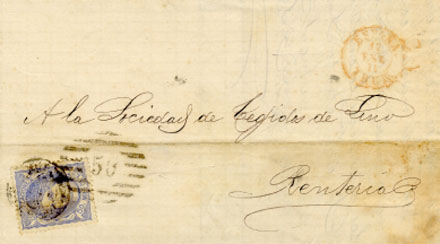 A la Sociedad de Tegidos de Lino
50
Rentería